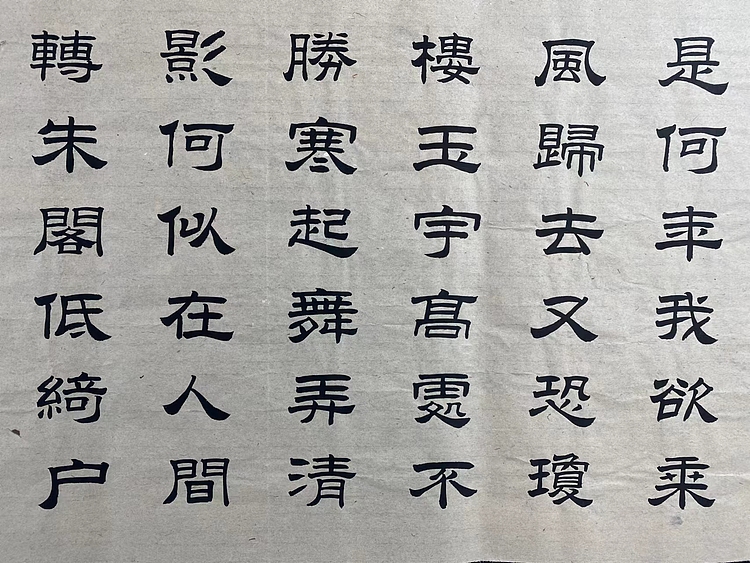 是何年我欲乘
風歸去又恐瓊
樓玉宇高處不
勝寒起舞弄清
影何似在人間
轉朱閣低綺户